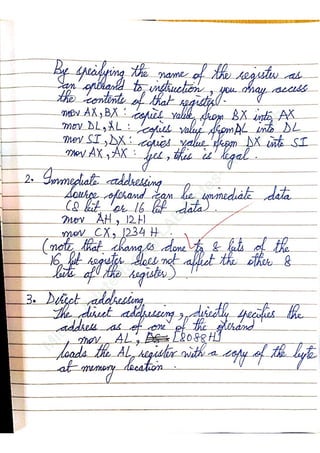 By specifying the name of the register as
an operand to instruction, you may access
the contents of that register.
mov AX, BX : copies value from BX into AX
mov DL, AL : copies value from AL into DL
mov SI, DX : copies value from DX into SI
mov AX, AX : yes, this is legal.
2. Immediate addressing
Source operand can be immediate data
(8 bit or 16 bit data).
mov AH, 12H
mov CX, 1234 H
(note that changes done to 8 bits of the
16 bit register does not affect the other 8
bits of the register)
3. Direct addressing
The direct addressing, directly specifies the
address as of one of the operand
mov AL, [8088H]
loads the AL register with a copy of the byte
at memory location.